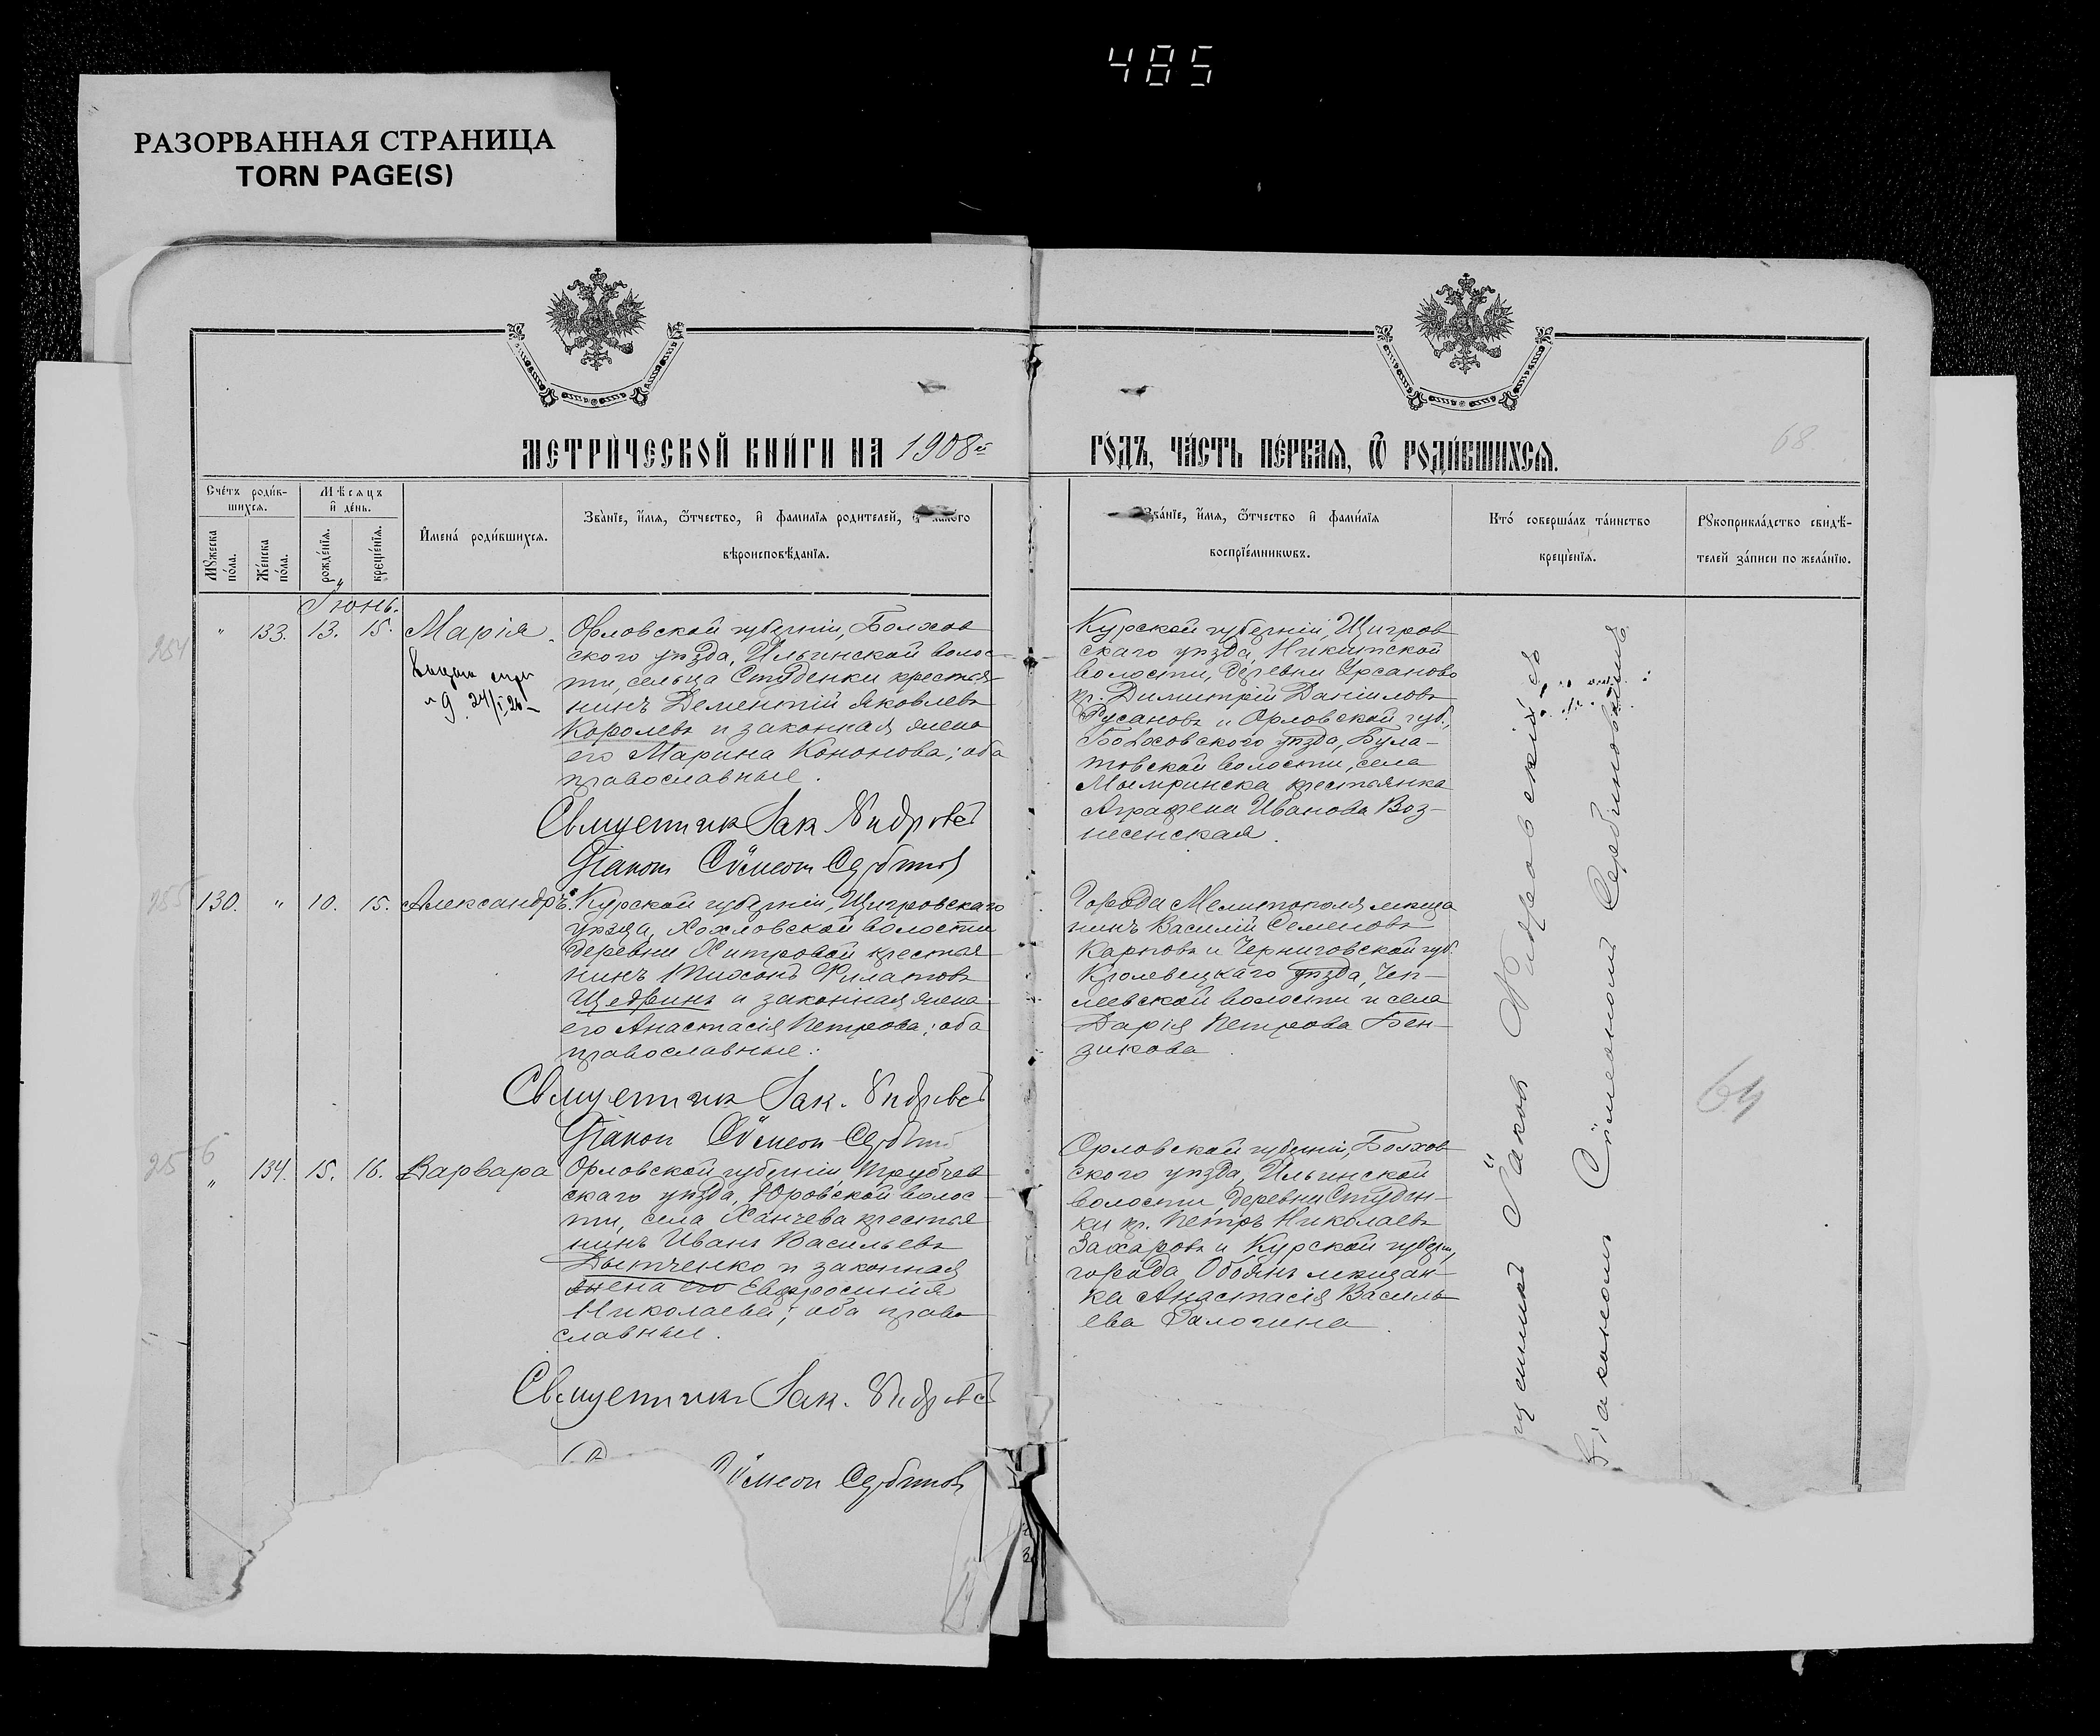 485
РАЗОРВАННАЯ СТРАНИЦА
TORN PAGE(S)
МЕТРИ́ЧЕСКОЙ КНИ́ГИ НА 1908й
ГО́ДЪ, ЧА́СТЬ ПЕ́РВАЯ, Ѿ РОДИ́ВШИХСЯ.
68
Сче́тъ роди́в-
шихся.
Мѣ́сяцъ
и де́нь.
Му́жеска
по́ла.
Же́нска
по́ла.
рожде́нія.
креще́нія.
Имена́ роди́вшихся.
Зва́ніе, и́мя, ѻ́тчество, и фами́лія родителей,
вѣроисповѣ́данія.
Зва́ніе, и́мя, ѻ́тчество и фами́лія
воспріе́мниковъ.
Кто́ соверша́лъ та́инство
креще́нія.
Рукоприкла́дство свидѣ́-
телей за́писи по жела́нію.
Іюнь.
254
" 133. 13. 15. Марія.
24/I 26
Орловской губерніи, Болхов
ского уѣзда, Ильинской волос-
ти, сельца Студенки крестья-
нинъ Дементій Яковлевъ
Королевъ и законная жена
его Марина Кононова; оба
православные.
Священникъ Іак.
Діаконъ Сѵмеонъ
Курской губерніи, Щигров
скаго уѣзда, Никитской
волости, деревни
кр. Димитрій Даніиловъ
Русановъ и Орловской губ.,
Болховского уѣзда,
волости, села
крестьянка
Аграфена Иванова Воз-
несенская.
255
130. " 10. 15. Александръ.
Курской губерніи, Щигровскаго
уѣзда, Хохловской волости
деревни Хитровой крестья-
нинъ Тихонъ Филатовъ
Щедринъ и законная жена
его Анастасія Петрова; оба
православные.
Священникъ Іак.
Діаконъ Сѵмеонъ
Города Мелитополя мѣща
нинъ Василій Семеновъ
Карповъ и Черниговской губ.
Кролевецкаго уѣзда, Чеп-
леевской волости и села
Дарія Петрова Бен-
зикова.
64
256
" 134. 15. 16. Варвара
Орловской губерніи, Трубчев
скаго уѣзда, Юровской волос-
ти, села крестья
нинъ Иванъ Васильевъ
и законная
жена его Евфросинія
Николаева; оба право
славные.
Священникъ Іак.
Сѵмеонъ
Орловской губерніи, Болхов
ского уѣзда, Ильинской
волости, деревни Студен-
ки кр. Петръ Николаевъ
Захаровъ и Курской губерн,
города Обояни мѣщан-
ка Анастасія Василь
ева
Іаковъ
Діакономъ Сѵмеономъ